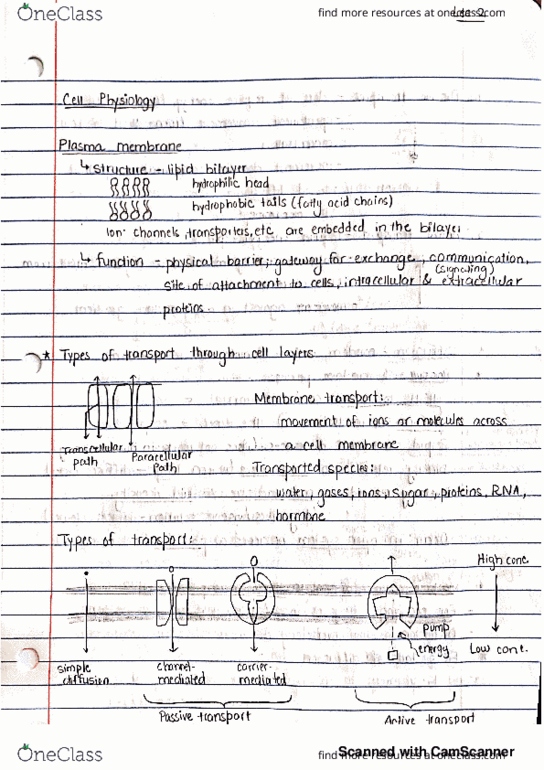 OneClass
find more resources at oneclass.com
Cell Physiology
Plasma membrane
↳ structure - lipid bilayer
hydrophilic head
hydrophobic tails (fatty acid chains)
Ion channels, transporters, etc are embedded in the bilayer
↳ function - physical barrier; gateway for exchange, communication,
(signaling)
site of attachment to cells, intracellular & extracellular
proteins
* Types of transport through cell layers
Membrane transport:
movement of ions or molecules across
a cell membrane
Transcellular path
Paracellular Path
Transported species:
water, gases, ions, sugar, proteins, RNA,
hormone
Types of transport:
High conc.
pump
energy
Low conc.
simple diffusion
channel-mediated
carrier-mediated
Passive transport
Active transport
OneClass
find more resources at oneclass.com
Scanned with CamScanner